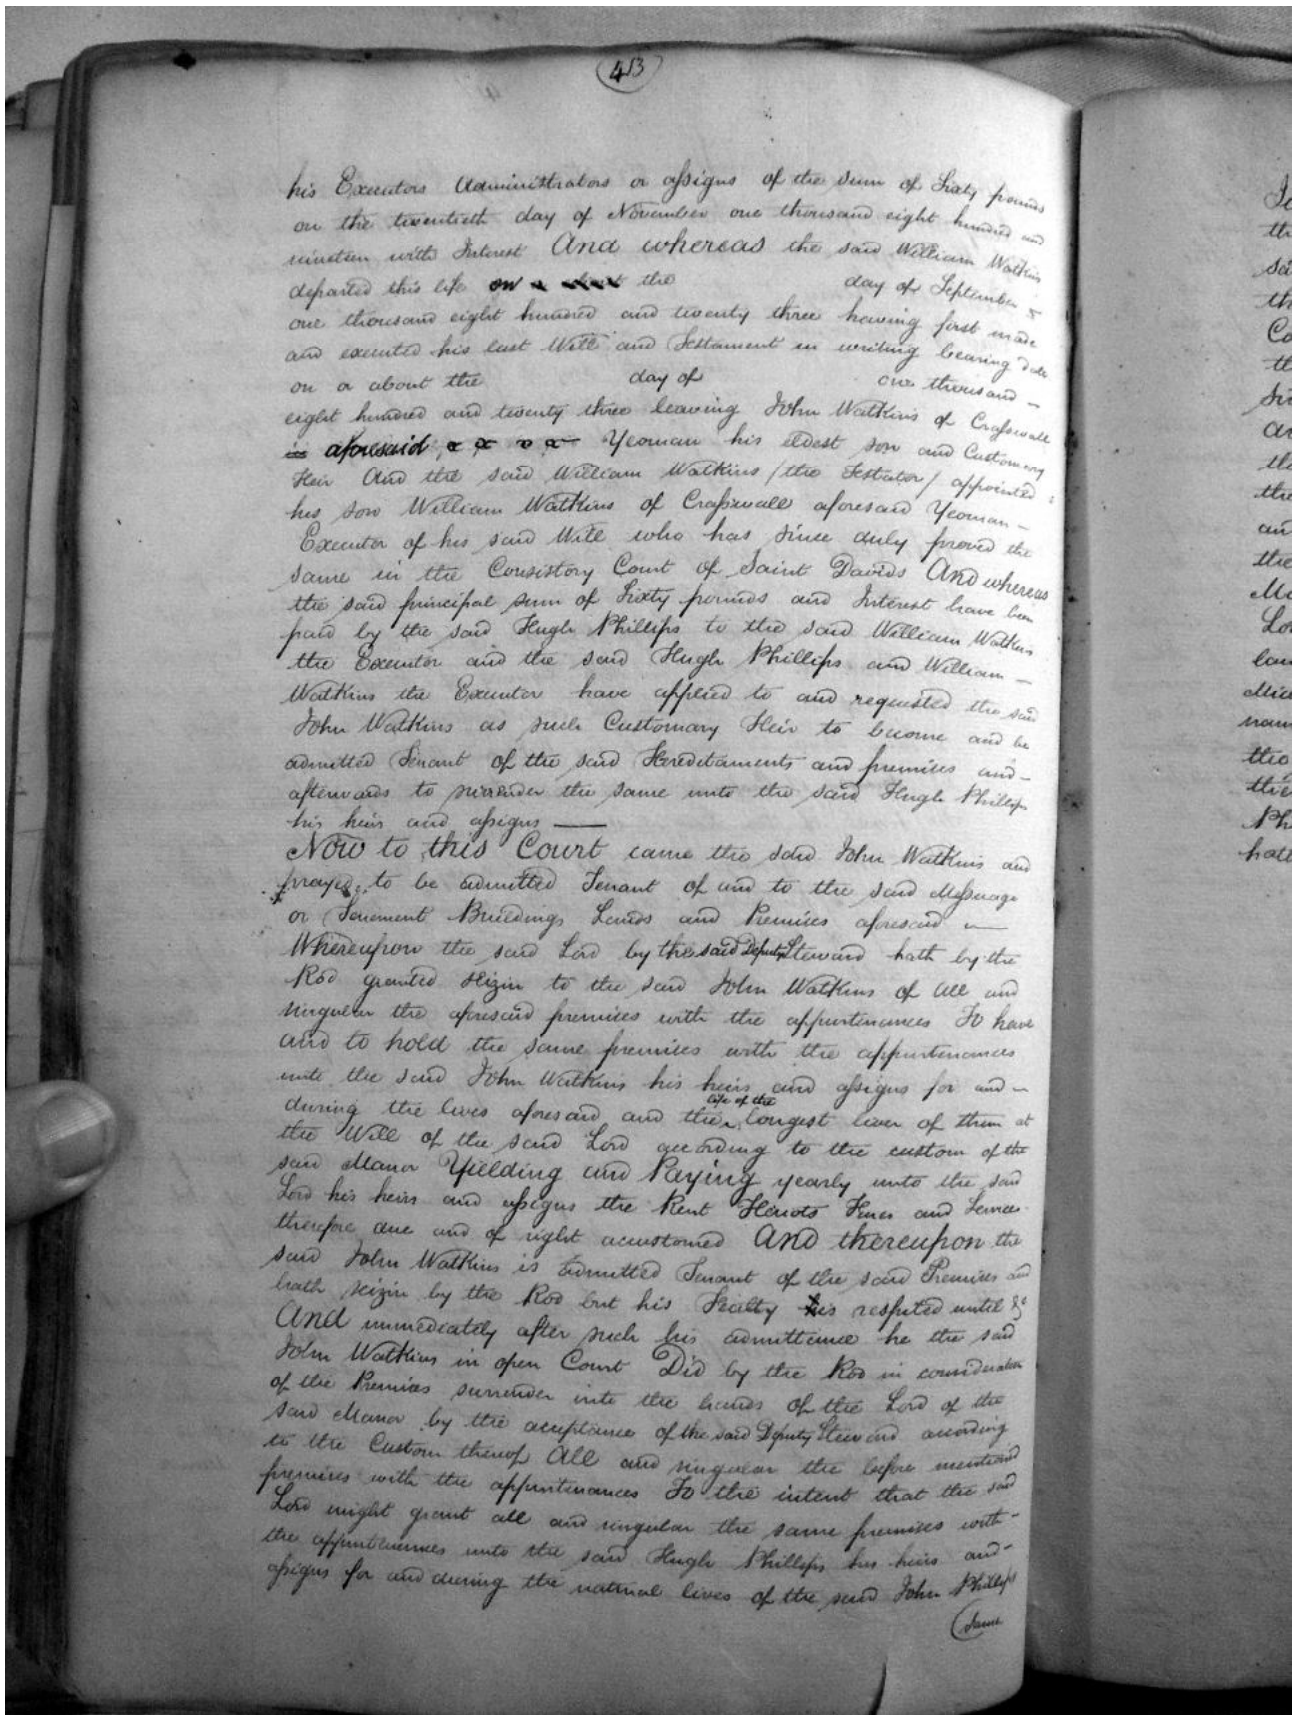 453
his Executors Administrators or assigns of the sum of Sixty pounds
on the twentieth day of November one thousand eight hundred and
nineteen with Interest And whereas the said William Watkins
departed this life the day of September
one thousand eight hundred and twenty three having first made
and executed his last Will and Testament in writing bearing date
on or about the day of one thousand –
eight hundred and twenty three leaving John Watkins of Crasswall
aforesaid Yeoman his eldest son and Customary
Heir And the said William Watkins / the Testator / appointed
his son William Watkins of Crasswall aforesaid Yeoman –
Executor of his said Will who has since duly proved the
same in the Consistory Court of Saint Davids And whereas
the said principal sum of Sixty pounds and Interest have been
paid by the said Hugh Phillips to the said William Watkins
the Executor and the said Hugh Phillips and William –
Watkins the Executor have applied to and requested the said
John Watkins as such Customary Heir to become and be
admitted Tenant of the said Hereditaments and premises and –
afterwards to surrender the same unto the said Hugh Phillips
his heirs and assigns —
Now to this Court came the said John Watkins and
prayed to be admitted Tenant of and to the said Messuage
or Tenement Buildings Lands and Premises aforesaid –
Whereupon the said Lord by the said Deputy Steward hath by the
Rod granted seizin to the said John Watkins of all and
singular the aforesaid premises with the appurtenances To have
and to hold the same premises with the appurtenances
unto the said John Watkins his heirs and assigns for and –
during the lives aforesaid and the life of the longest liver of them at
the Will of the said Lord according to the custom of the
said Manor Yielding and Paying yearly unto the said
Lord his heirs and assigns the Rent Heriots Fines and Services
therefore due and of right accustomed And thereupon the
said John Watkins is admitted Tenant of the said Premises and
hath seizin by the Rod but his Fealty is respited until &c
And immediately after such his admittance he the said
John Watkins in open Court Did by the Rod in consideration
of the Premises surrender into the hands of the Lord of the
said Manor by the acceptance of the said Deputy Steward according
to the Custom thereof All and singular the before mentioned
premises with the appurtenances To the intent that the said
Lord might grant all and singular the same premises with –
the appurtenances unto the said Hugh Phillips his heirs and –
assigns for and during the natural lives of the said John Phillips